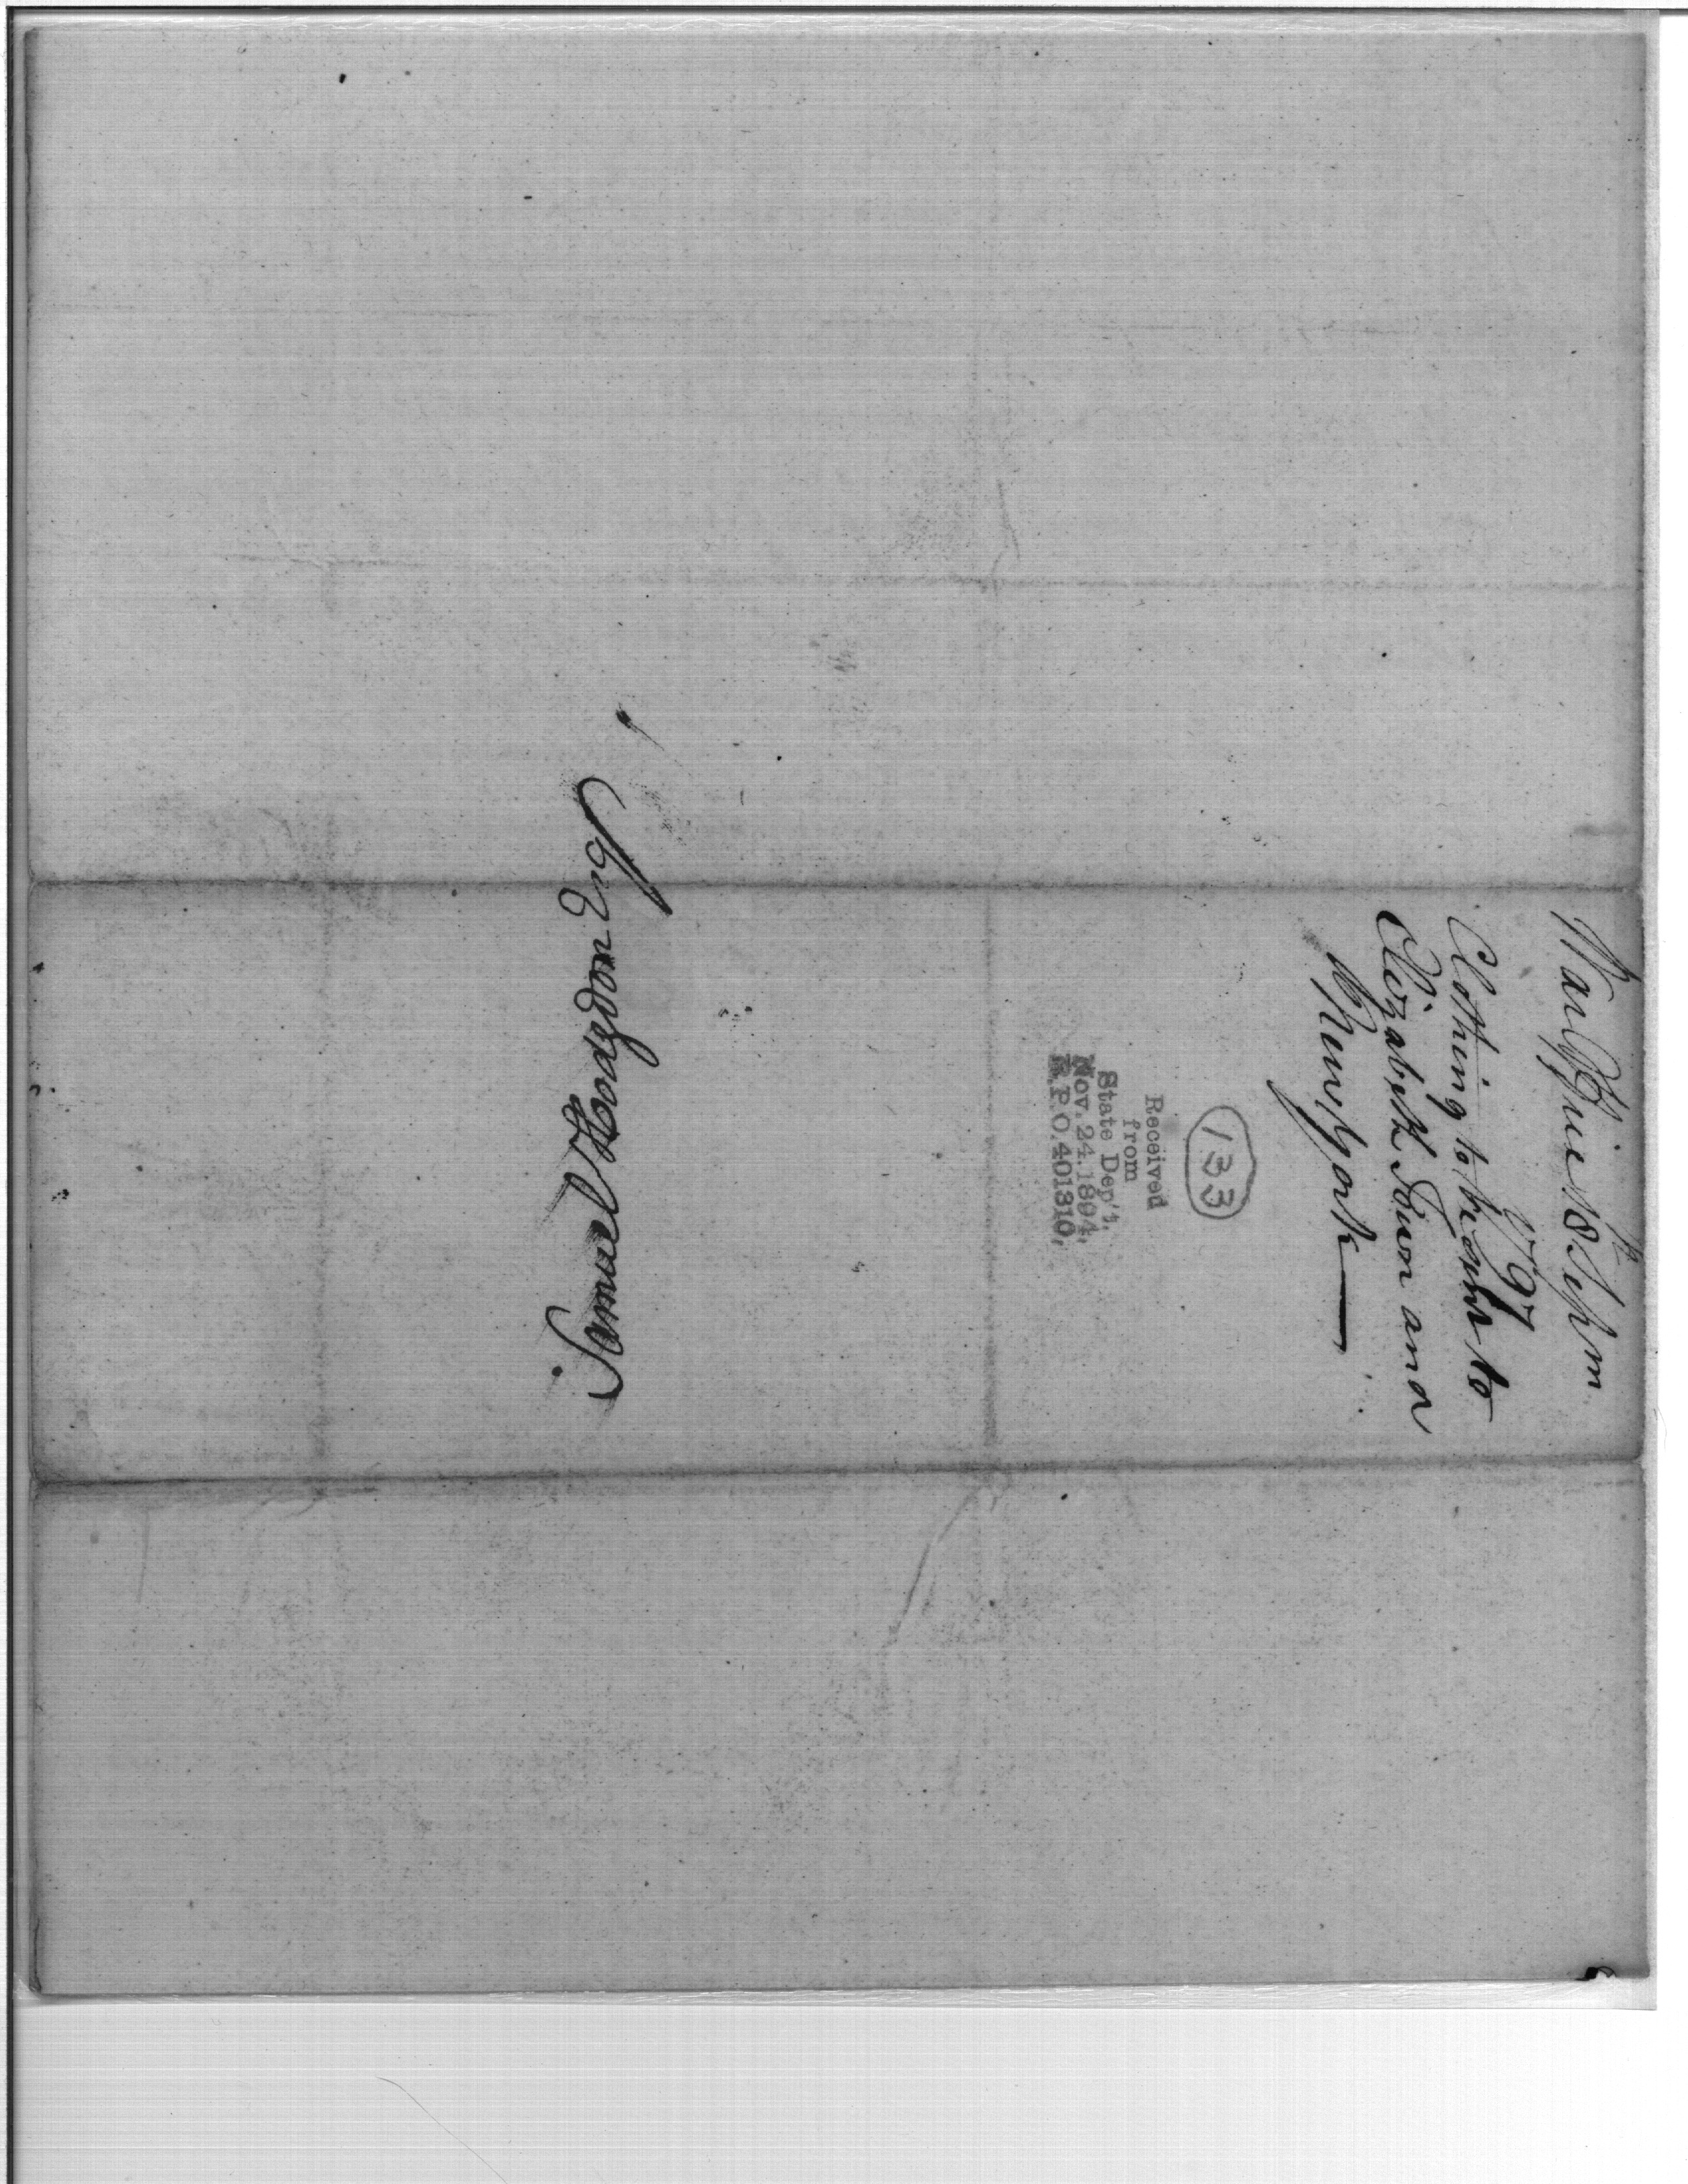 War Office 18th Septm
1797
Clothing to be sent to
Elizabeth Town and
New York —
133
Received
from
State Dep't.
Nov. 24, 1894,
R. P. O. 401310.
Samuel Hodgdon Esq